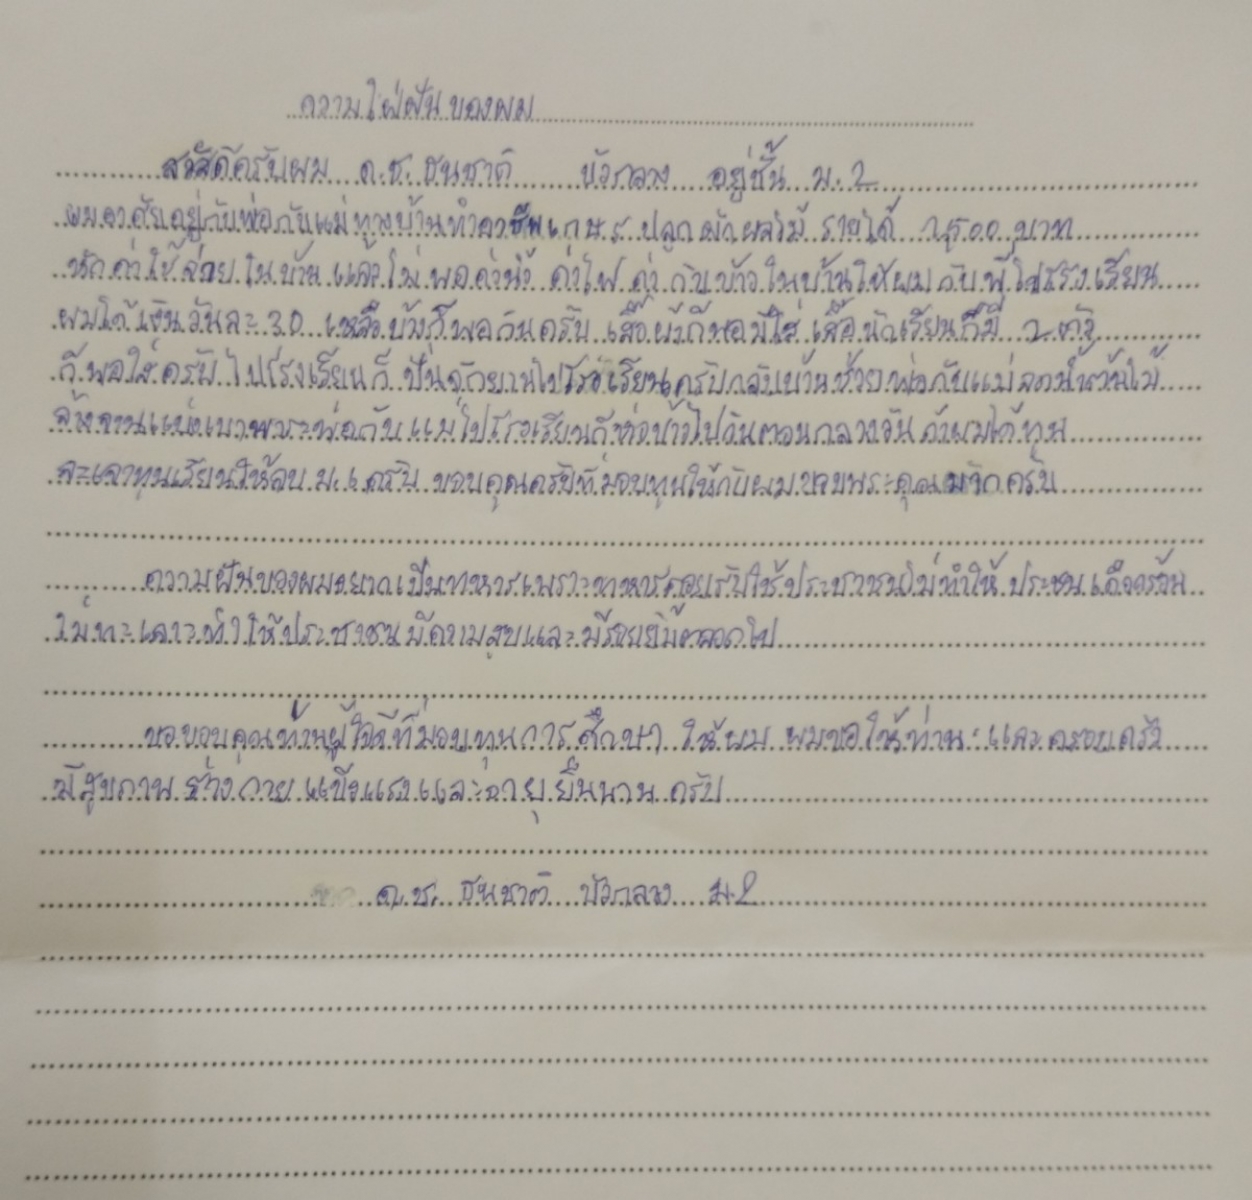 ความใฝ่ฝันของผม
สวัสดีครับผม ด.ช. ธนชาติ บัวกลาง อยู่ชั้น ม.2
ผมอาศัยอยู่กับพ่อกับแม่ ทางบ้านทำอาชีพเกษร ปลูกผักผลไม้ รายได้ 7,500 บาท
หักค่าใช้จ่ายในบ้านแล้วไม่พอค่าน้ำ ค่าไฟ ค่ากับข้าวในบ้านให้ผมกับพี่ไปโรงเรียน
ผมได้เงินวันละ 30 เหลือบ้างก็พอกินครับ เสื้อผ้าก็พอมีใส่ เสื้อนักเรียนก็มี 2 ตัว
ก็พอใส่ครับ ไปโรงเรียนก็ ปั่นจักยานไปโรงเรียนครับกลับบ้านช่วยพ่อกับแม่ลดน้ำต้นไม้
ล้างจานแบ่งเบาพาระพ่อกับแม่ไปโรงเรียนก็ห่อข้าวไปกินตอนกลางวัน ถ้าผมได้ทุน
จะเอาทุนเรียนให้จบ ครับ ขอบคุณครับที่มอบทุนให้กับผมขอบพระคุณมากครับ
ความฝันของผมอยากเป็นทหารเพราะทหารคอยรับใช้ประชาชนไม่ทำให้ ประชน เดือดร้อน
ไม่ทะเลาะทำให้ประชาชน มีความสุขและมีรอยยิ้มตลอดไป
ขอขอบคุณท่านผู้ใจดีที่มอบทุนการศึกษา ให้ผม ผมขอให้ท่าน และครอบครัว
มีสุขภาพ ร่างกาย แข็งแรงและอายุ ยืนนาน ครับ
ด.ช. ธนชาติ บัวกลาง ม.2